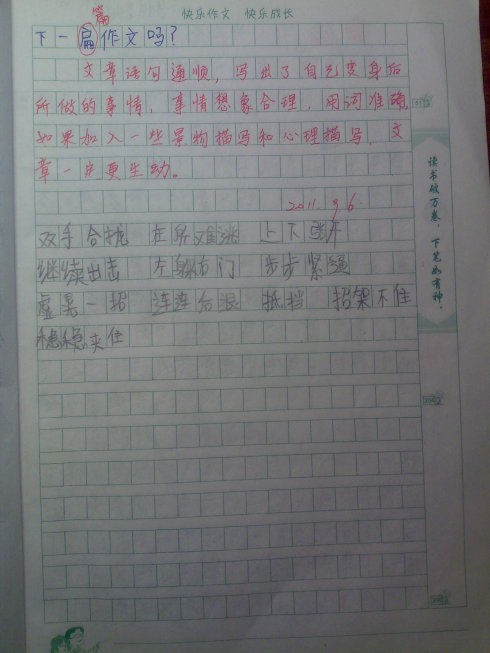 快乐作文 快乐成长
篇
下一扁作文吗?
文章语句通顺,写出了自己变身后
所做的事情,事情想象合理,用词准确,
如果加入一些景物描写和心理描写,文
章一定更生动。
2011 9 6
双手合拢 在所难逃 上下张开
继续出击 左躲右闪 步步紧逼
虚晃一招 连连后退 抵挡 招架不住
稳稳夹住
读书破万卷,下笔如有神。